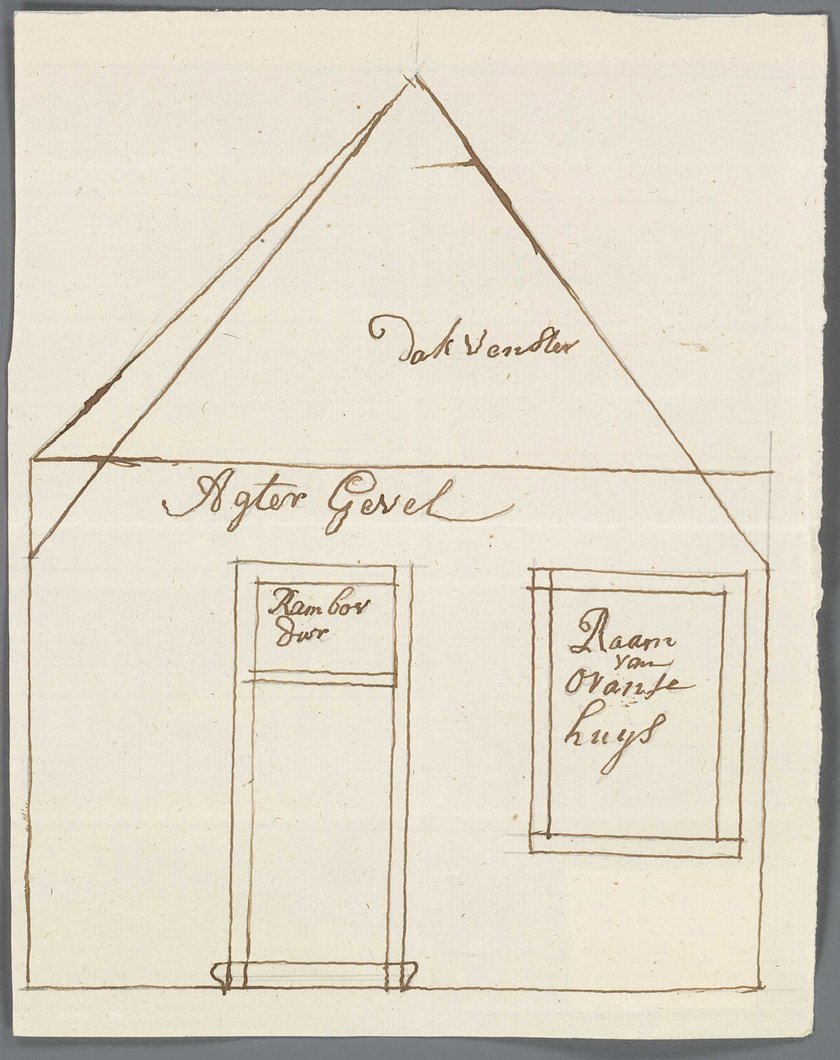 Dak venster
Agter Gevel
Raam bov
dur
Raam
van
Oranje
huys